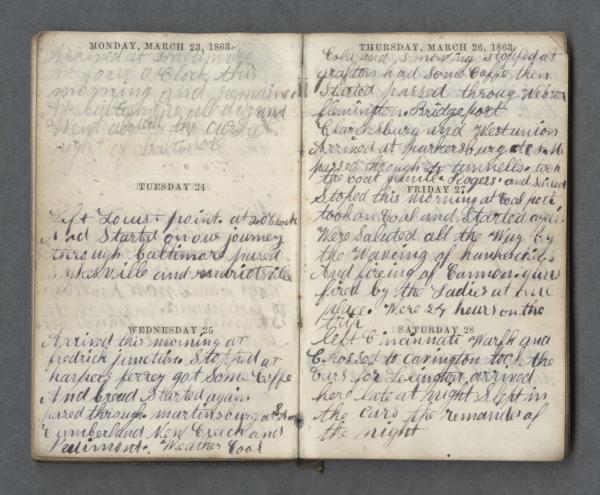 MONDAY, MARCH 23, 1863.
Arrived at Baltimore
at four O Clock this
morning and remained
in all day and
Went the
night of Baltimore
TUESDAY 24
Left Locust point at 2 O Clock
And Started on our journey
through Baltimore pased
Sykesville and
WEDNESDAY 25
Arrived this morning at
fredrick junction Stopped at
harpers ferrey got Some Coffe
And bread Started again
pased through martinsburg
Cumberland New Creeck and
Pedimont. Weather Cool
THURSDAY, MARCH 26, 1863.
Cold and Snowing stopped at
grafton had Some Coffe then
Started passed throug Webster
flemington Bridgeport
Clarcksburg and West union
Arrived at parkersburg at
passed through 24 tunnells. took
the boat Jennie Rogers and
FRIDAY 27
Stoped this morning at
took on Coal and Started again
Were Saluted all the Way by
the Waveing of hankerchiefs
And fireing of Cannon. guns
fired by the Ladies at
place. Were 24 hours on the
trip
SATURDAY 28
left Cincinnati Warfh and
Crossed to covington took the
Cars for Lexington arrived
here late at night Slept in
the Cars the remainder of
the night